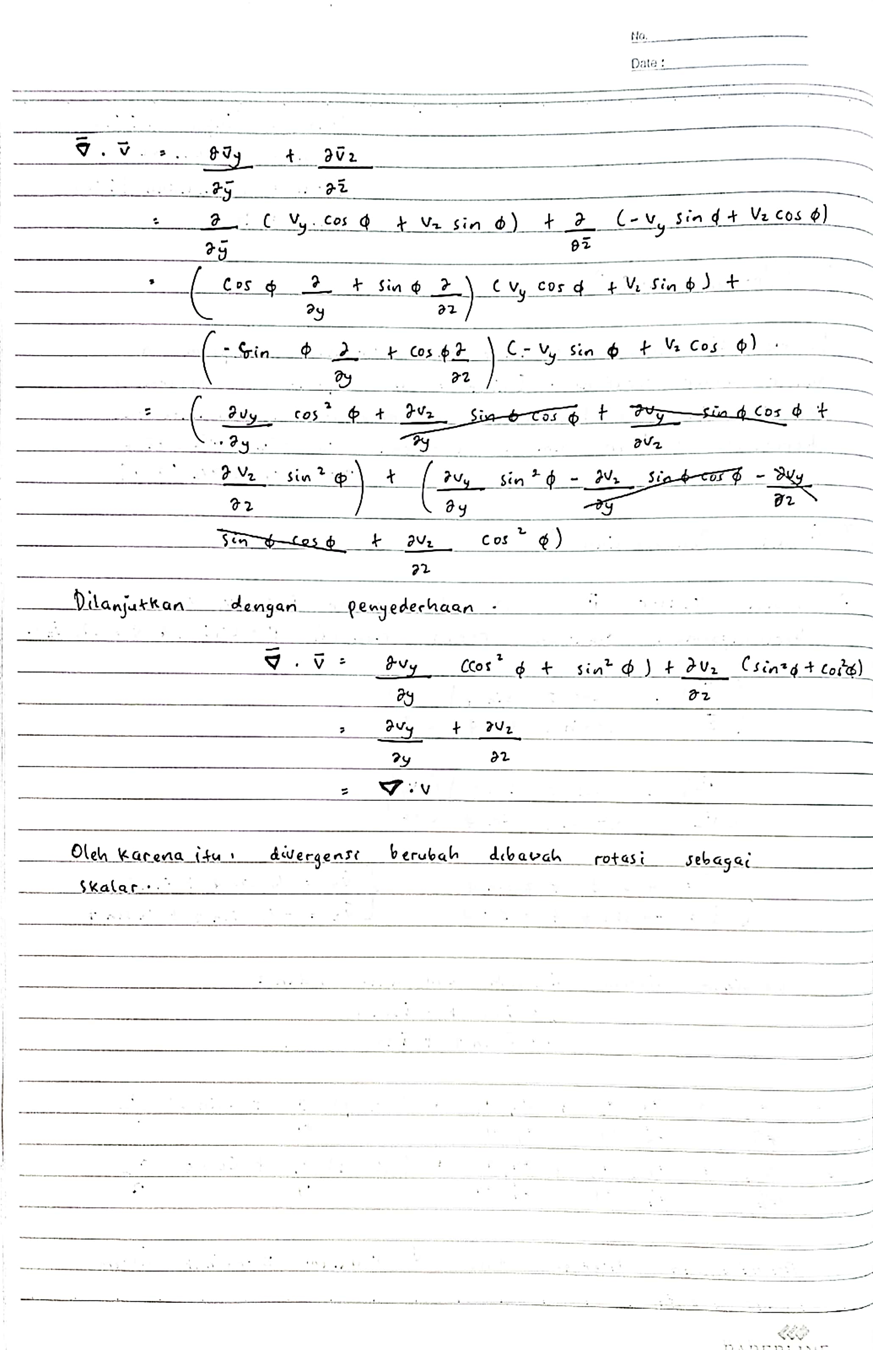 No.
Date :
∇̄ . v̄ = ∂v̄y/∂ȳ + ∂v̄z/∂z̄
= ∂/∂ȳ ( Vy cos φ + Vz sin φ) + ∂/∂z̄ (-Vy sin φ + Vz cos φ)
= ( cos φ ∂/∂y + sin φ ∂/∂z ) ( Vy cos φ + Vz sin φ ) +
( - sin φ ∂/∂y + cos φ ∂/∂z ) (- Vy sin φ + Vz cos φ) .
= ( ∂vy/∂y cos² φ + ∂vz/∂y sin φ cos φ + ∂vy/∂vz sin φ cos φ +
∂vz/∂z sin² φ ) + ( ∂vy/∂y sin² φ - ∂vz/∂y sin φ cos φ - ∂vy/∂z
sin φ cos φ + ∂vz/∂z cos² φ )
Dilanjutkan dengan penyederhaan .
∇̄ . v̄ = ∂vy/∂y (cos² φ + sin² φ ) + ∂vz/∂z (sin²φ + cos²φ)
= ∂vy/∂y + ∂vz/∂z
= ∇ . v
Oleh karena itu, divergensi berubah dibawah rotasi sebagai
skalar.